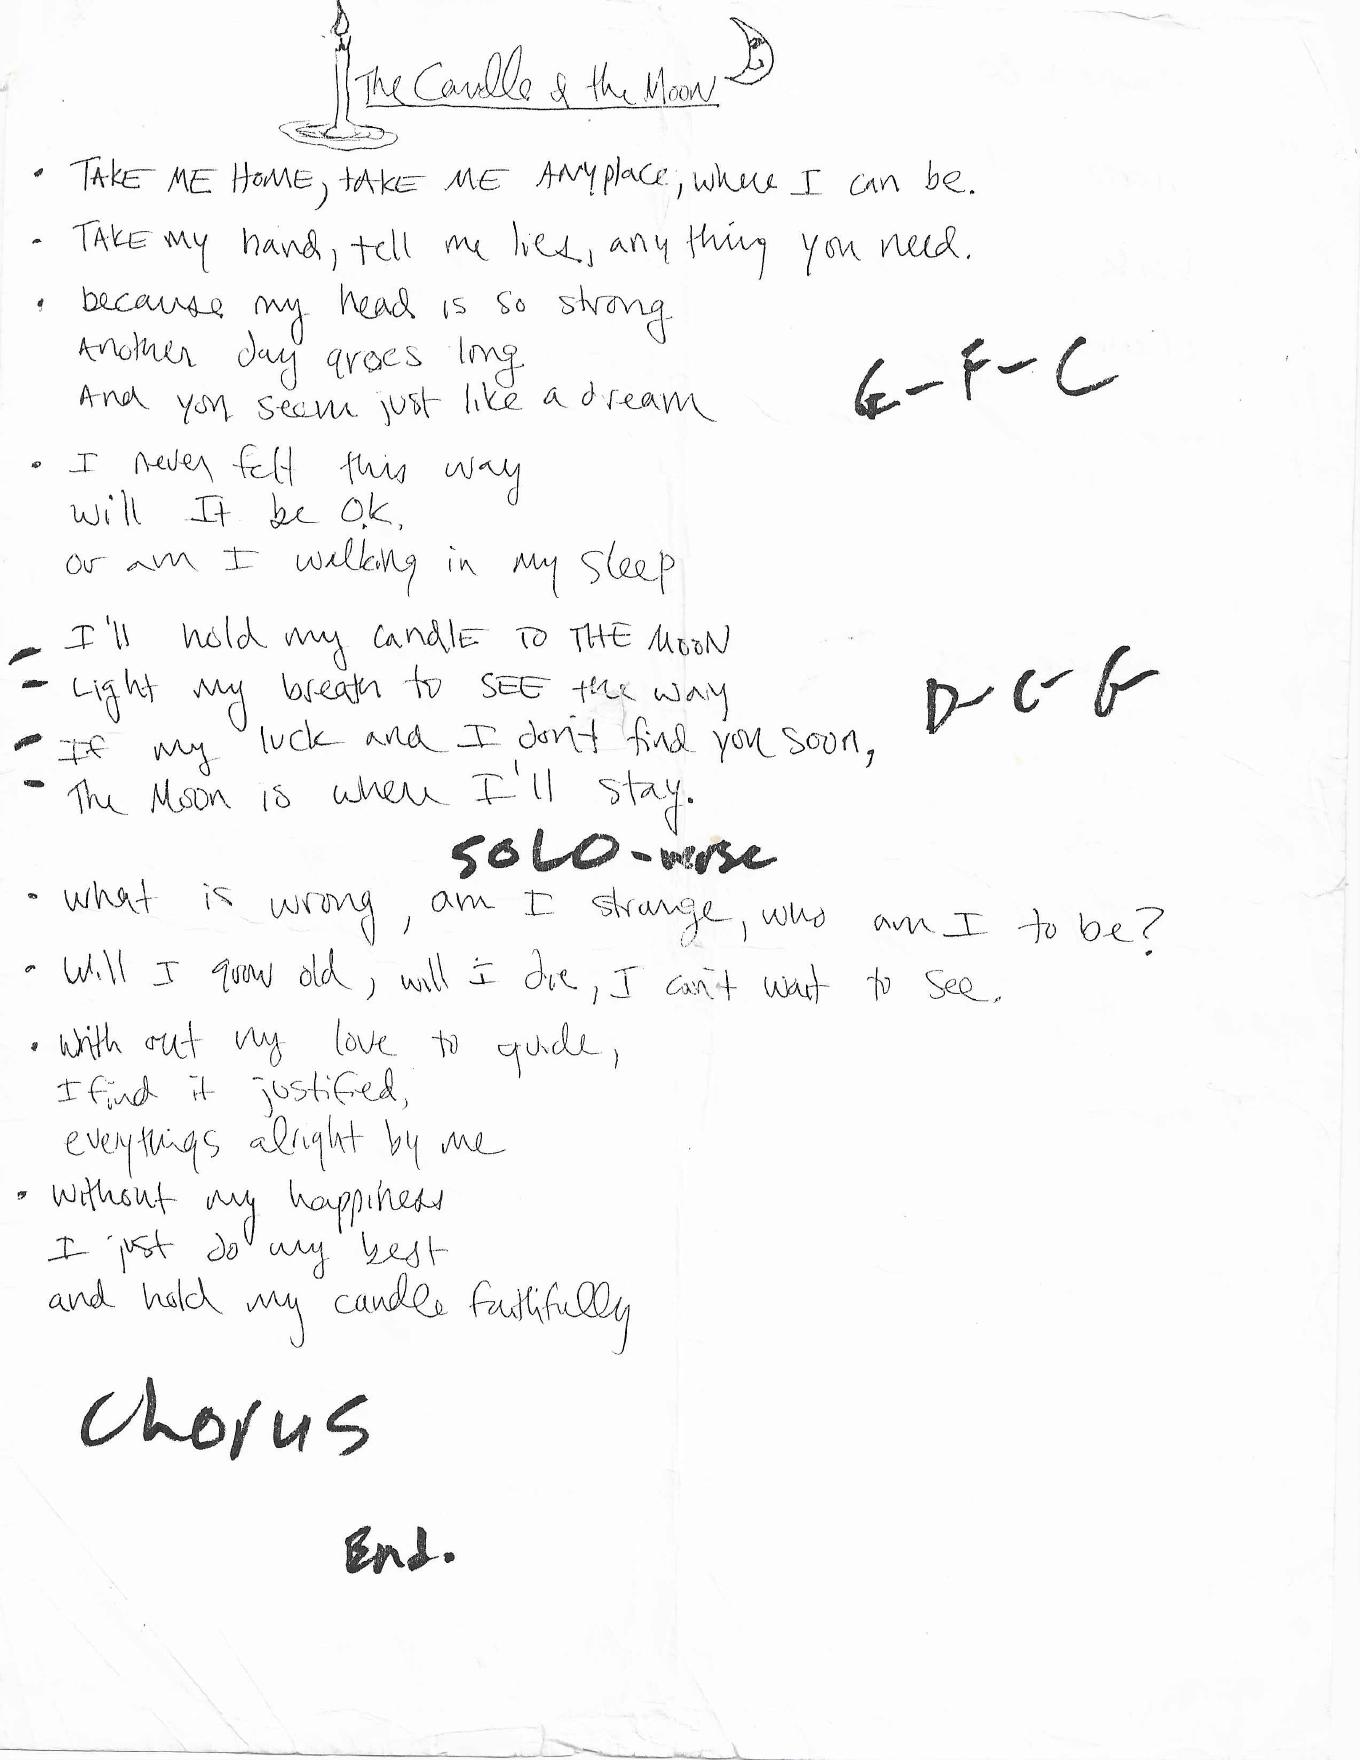 The Candle & the Moon
· TAKE ME HOME, tAKE ME ANYplace, where I can be.
- TAKE my hand, tell me lies, anything you need.
· because my head is so strong
Another day groes long
And you seem just like a dream
G-F-C
· I never felt this way
will It be O.K.
or am I walking in my sleep
- I'll hold my candlE TO THE MOON
- Light my breath to SEE the way
D-C-G
- If my luck and I don't find you soon,
- The Moon is where I'll stay.
SOLO-verse
· what is wrong, am I strange, who am I to be?
· Will I grow old, will i die, I can't wait to see.
· With out my love to guide,
I find it justified,
everythings alright by me
· without my happiness
I just do my best
and hold my candle faithfully
Chorus
End.